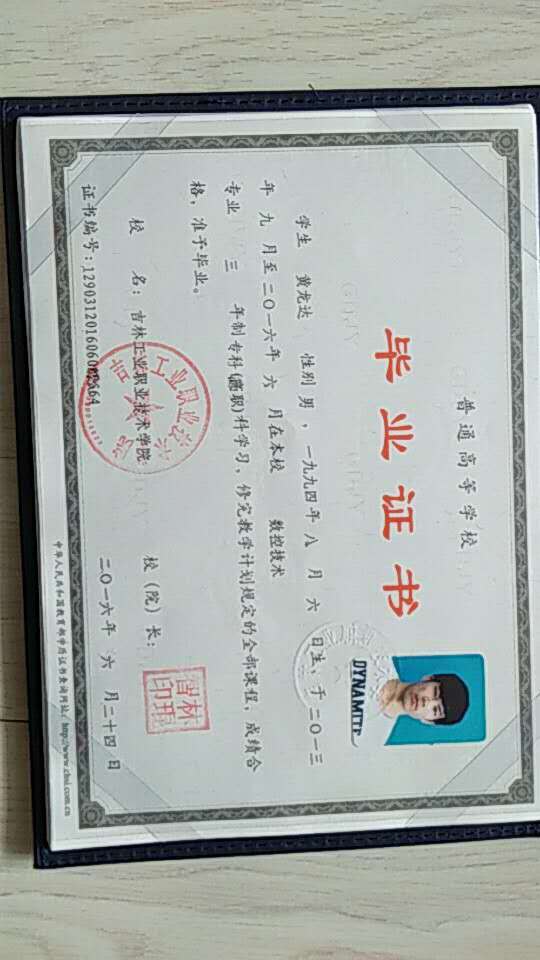 普通高等学校
毕业证书
学生 黄龙达 性别 男 ，一九九四年 八 月 六 日生，于二〇一三
年 九 月至二〇一六年 六 月在本校 数控技术
专业 三 年制专科(高职)科学习，修完教学计划规定的全部课程，成绩合
格，准予毕业。
校 名：吉林工业职业技术学院 校（院）长：
林印
证书编号： 二〇一六年 六 月二十四日
中华人民共和国教育部学历证书查询网站：http://www.chsi.com.cn
DYNAMITE